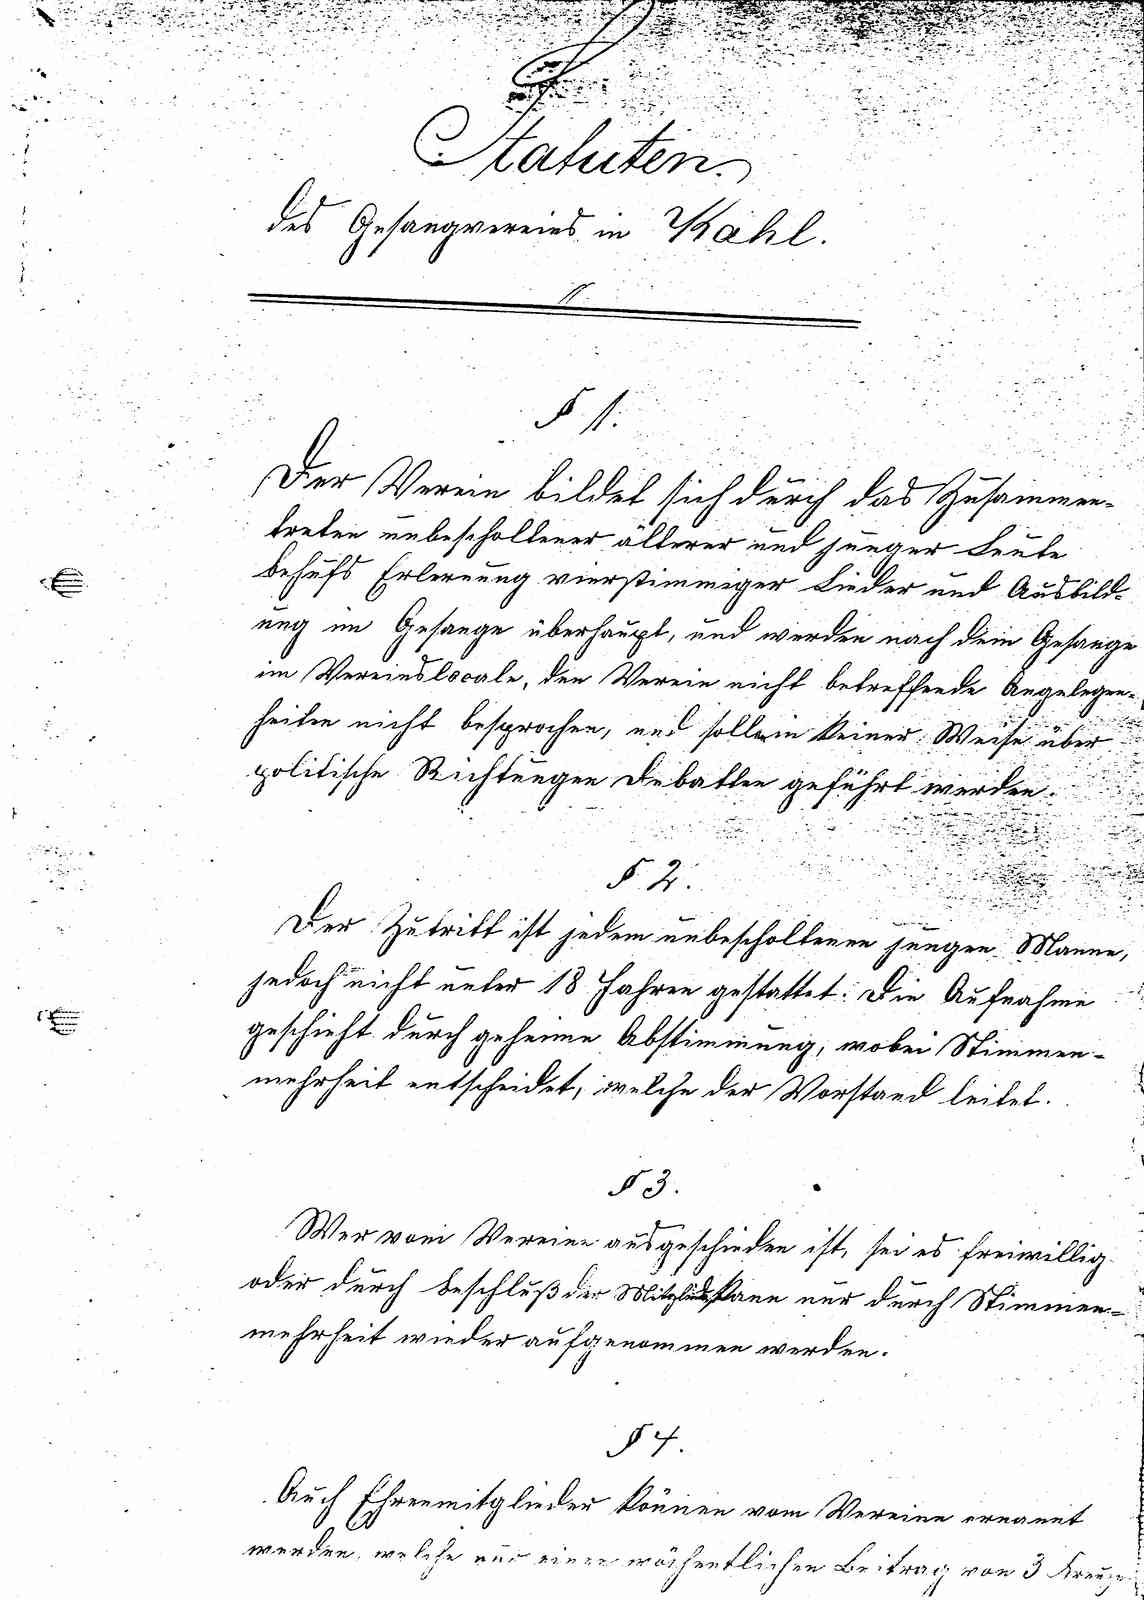 Statuten.
des Gesangvereins in Kahl.
§ 1.
Der Verein bildet sich durch das Zusammen-
treten unbescholtener älterer und junger Leute
behufs Erlernung vierstimmiger Lieder und Ausbild-
ung im Gesange überhaupt, und werden nach dem Gesange
im Vereinslocale, den Verein nicht betreffende Angelegen-
heiten nicht besprochen, und sollen in keiner Weise über
politische Richtungen Debatten geführt werden.
§ 2.
Der Zutritt ist jedem unbescholtenen jungen Manne,
jedoch nicht unter 18 Jahren gestattet. Die Aufnahme
geschieht durch geheime Abstimmung, wobei Stimmen-
mehrheit entscheidet, welche der Vorstand leitet.
§ 3.
Wer vom Vereine ausgeschieden ist, sei es freiwillig
oder durch Beschluß der Mitglieder kann nur durch Stimmen-
mehrheit wieder aufgenommen werden.
§ 4.
Auch Ehrenmitglieder können vom Vereine ernannt
werden, welche nur einen wöchentlichen Beitrag von 3